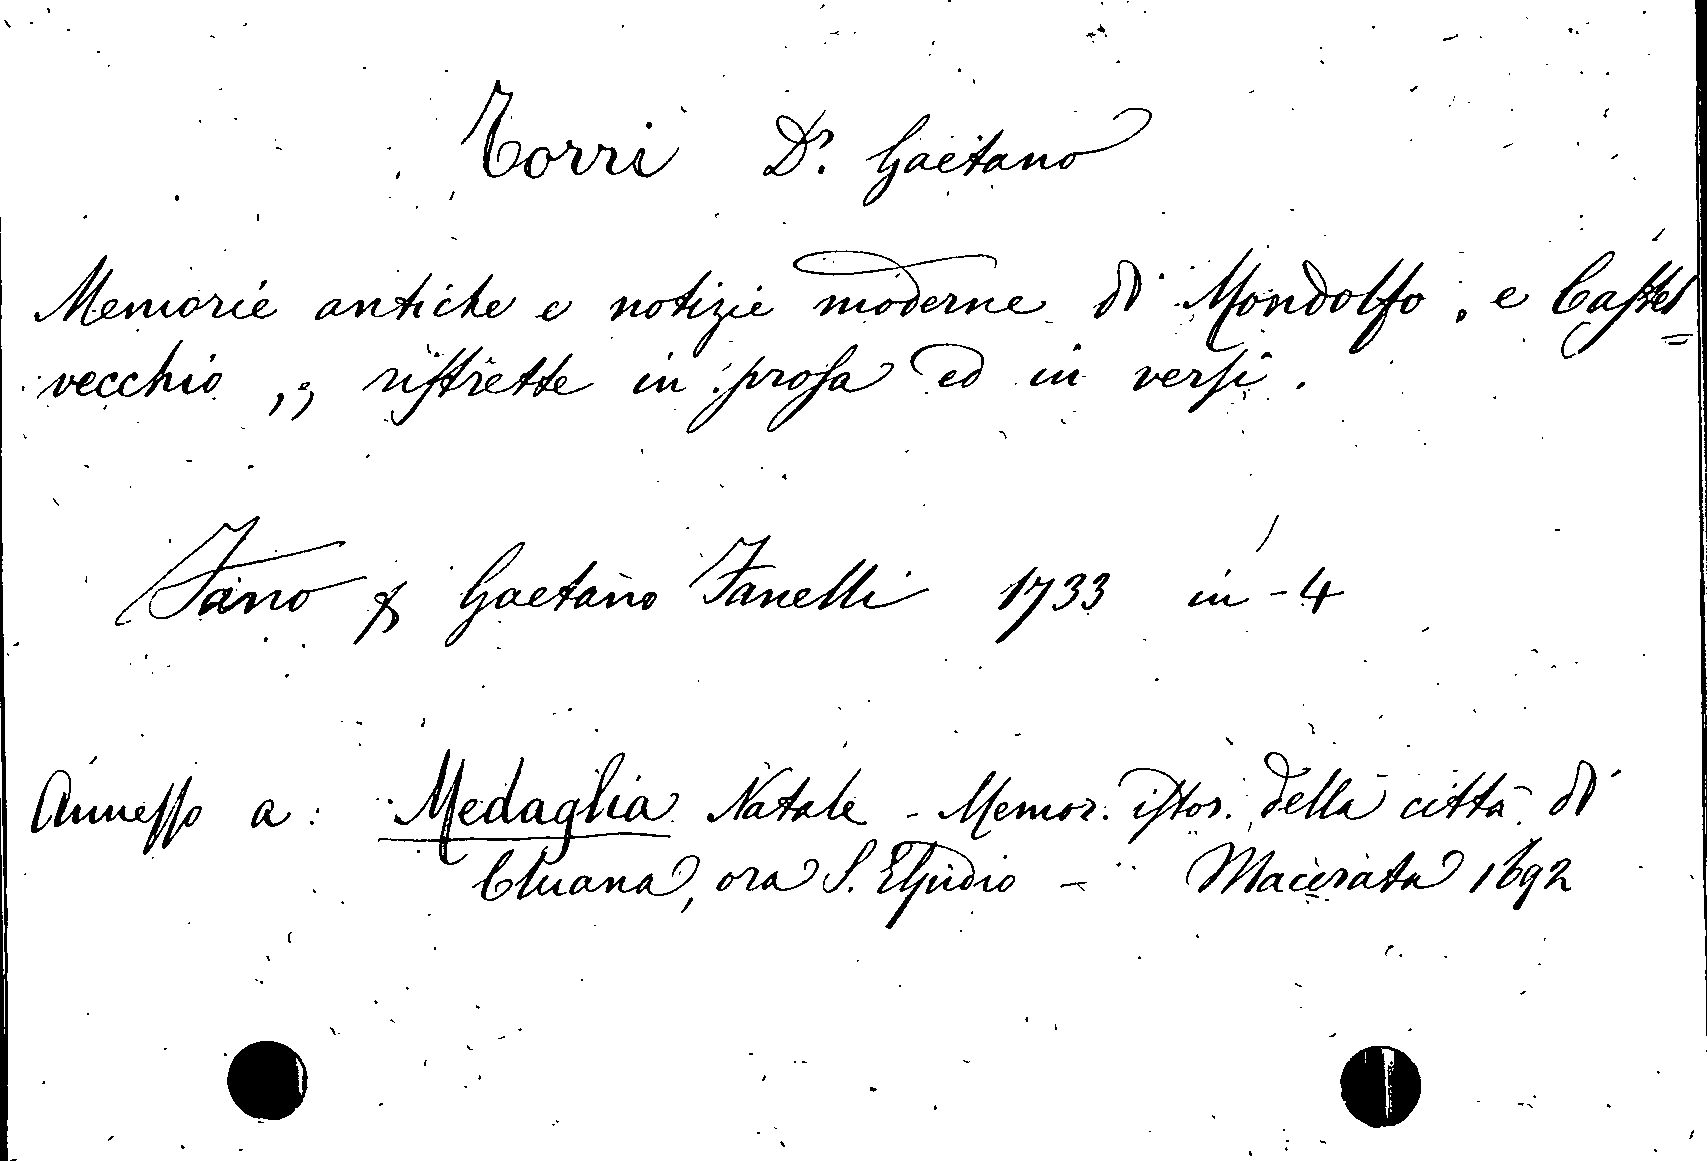 Torri Dr. Gaetano
Memorie antiche e notizie moderne di Mondolfo, e Castel=
vecchio,, ristrette in prosa ed in versi.
Fano p Gaetano Fanelli 1733 in-4
Annesso a: Medaglia Natale - Memor. istor. della città di
Cluana, ora S. Elpidio - Macerata 1692